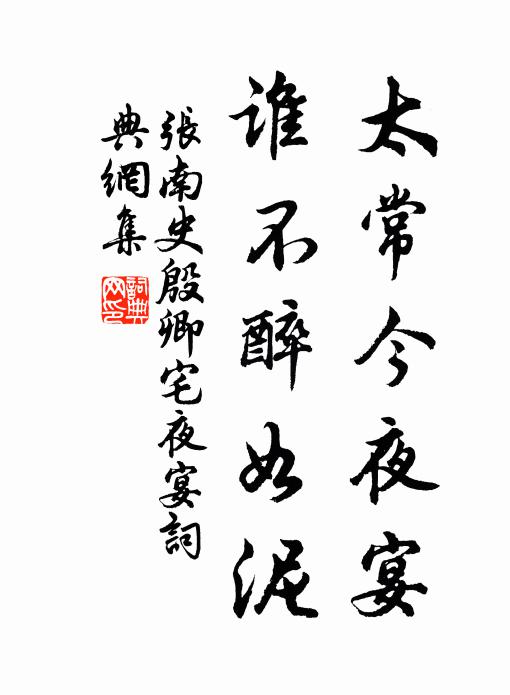 太常今夜宴
誰不醉如泥
張南史殷卿宅夜宴詞
典網集
詞典網印